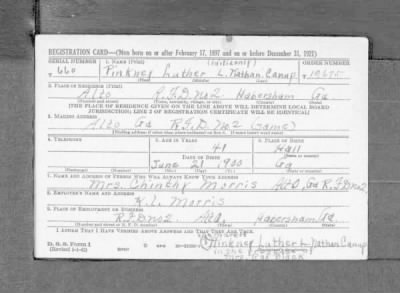 REGISTRATION CARD—(Men born on or after February 17, 1897 and on or before December 31, 1921)
SERIAL NUMBER 1. NAME (Print) ORDER NUMBER
660 Pinkney Luther L. Nathan Canup 12675
(First) (Middle) (Last)
2. PLACE OF RESIDENCE (Print)
Alto R.F.D. No 2 Habersham Ga
(Number and street) (Town, township, village, or city) (County) (State)
[THE PLACE OF RESIDENCE GIVEN ON THE LINE ABOVE WILL DETERMINE LOCAL BOARD
JURISDICTION; LINE 2 OF REGISTRATION CERTIFICATE WILL BE IDENTICAL]
3. MAILING ADDRESS
Alto Ga R.F.D. No 2 (Same)
[Mailing address if other than place indicated on line 2. If same insert word same]
4. TELEPHONE 5. AGE IN YEARS 6. PLACE OF BIRTH
41 Hall
DATE OF BIRTH
June 21 1900 Ga
7. NAME AND ADDRESS OF PERSON WHO WILL ALWAYS KNOW YOUR ADDRESS
Mrs. Morris Alto, Ga R.F.D. No 2
8. EMPLOYER'S NAME AND ADDRESS
Morris
9. PLACE OF EMPLOYMENT OR BUSINESS
R.F.D. No 2 Alto, Habersham Ga.
(Number and street or R. F. D. number) (Town) (County) (State)
I AFFIRM THAT I HAVE VERIFIED ABOVE ANSWERS AND THAT THEY ARE TRUE.
D. S. S. Form 1
(Revised 1-1-42) (over)
Pinkney Luther L. Nathan Canup